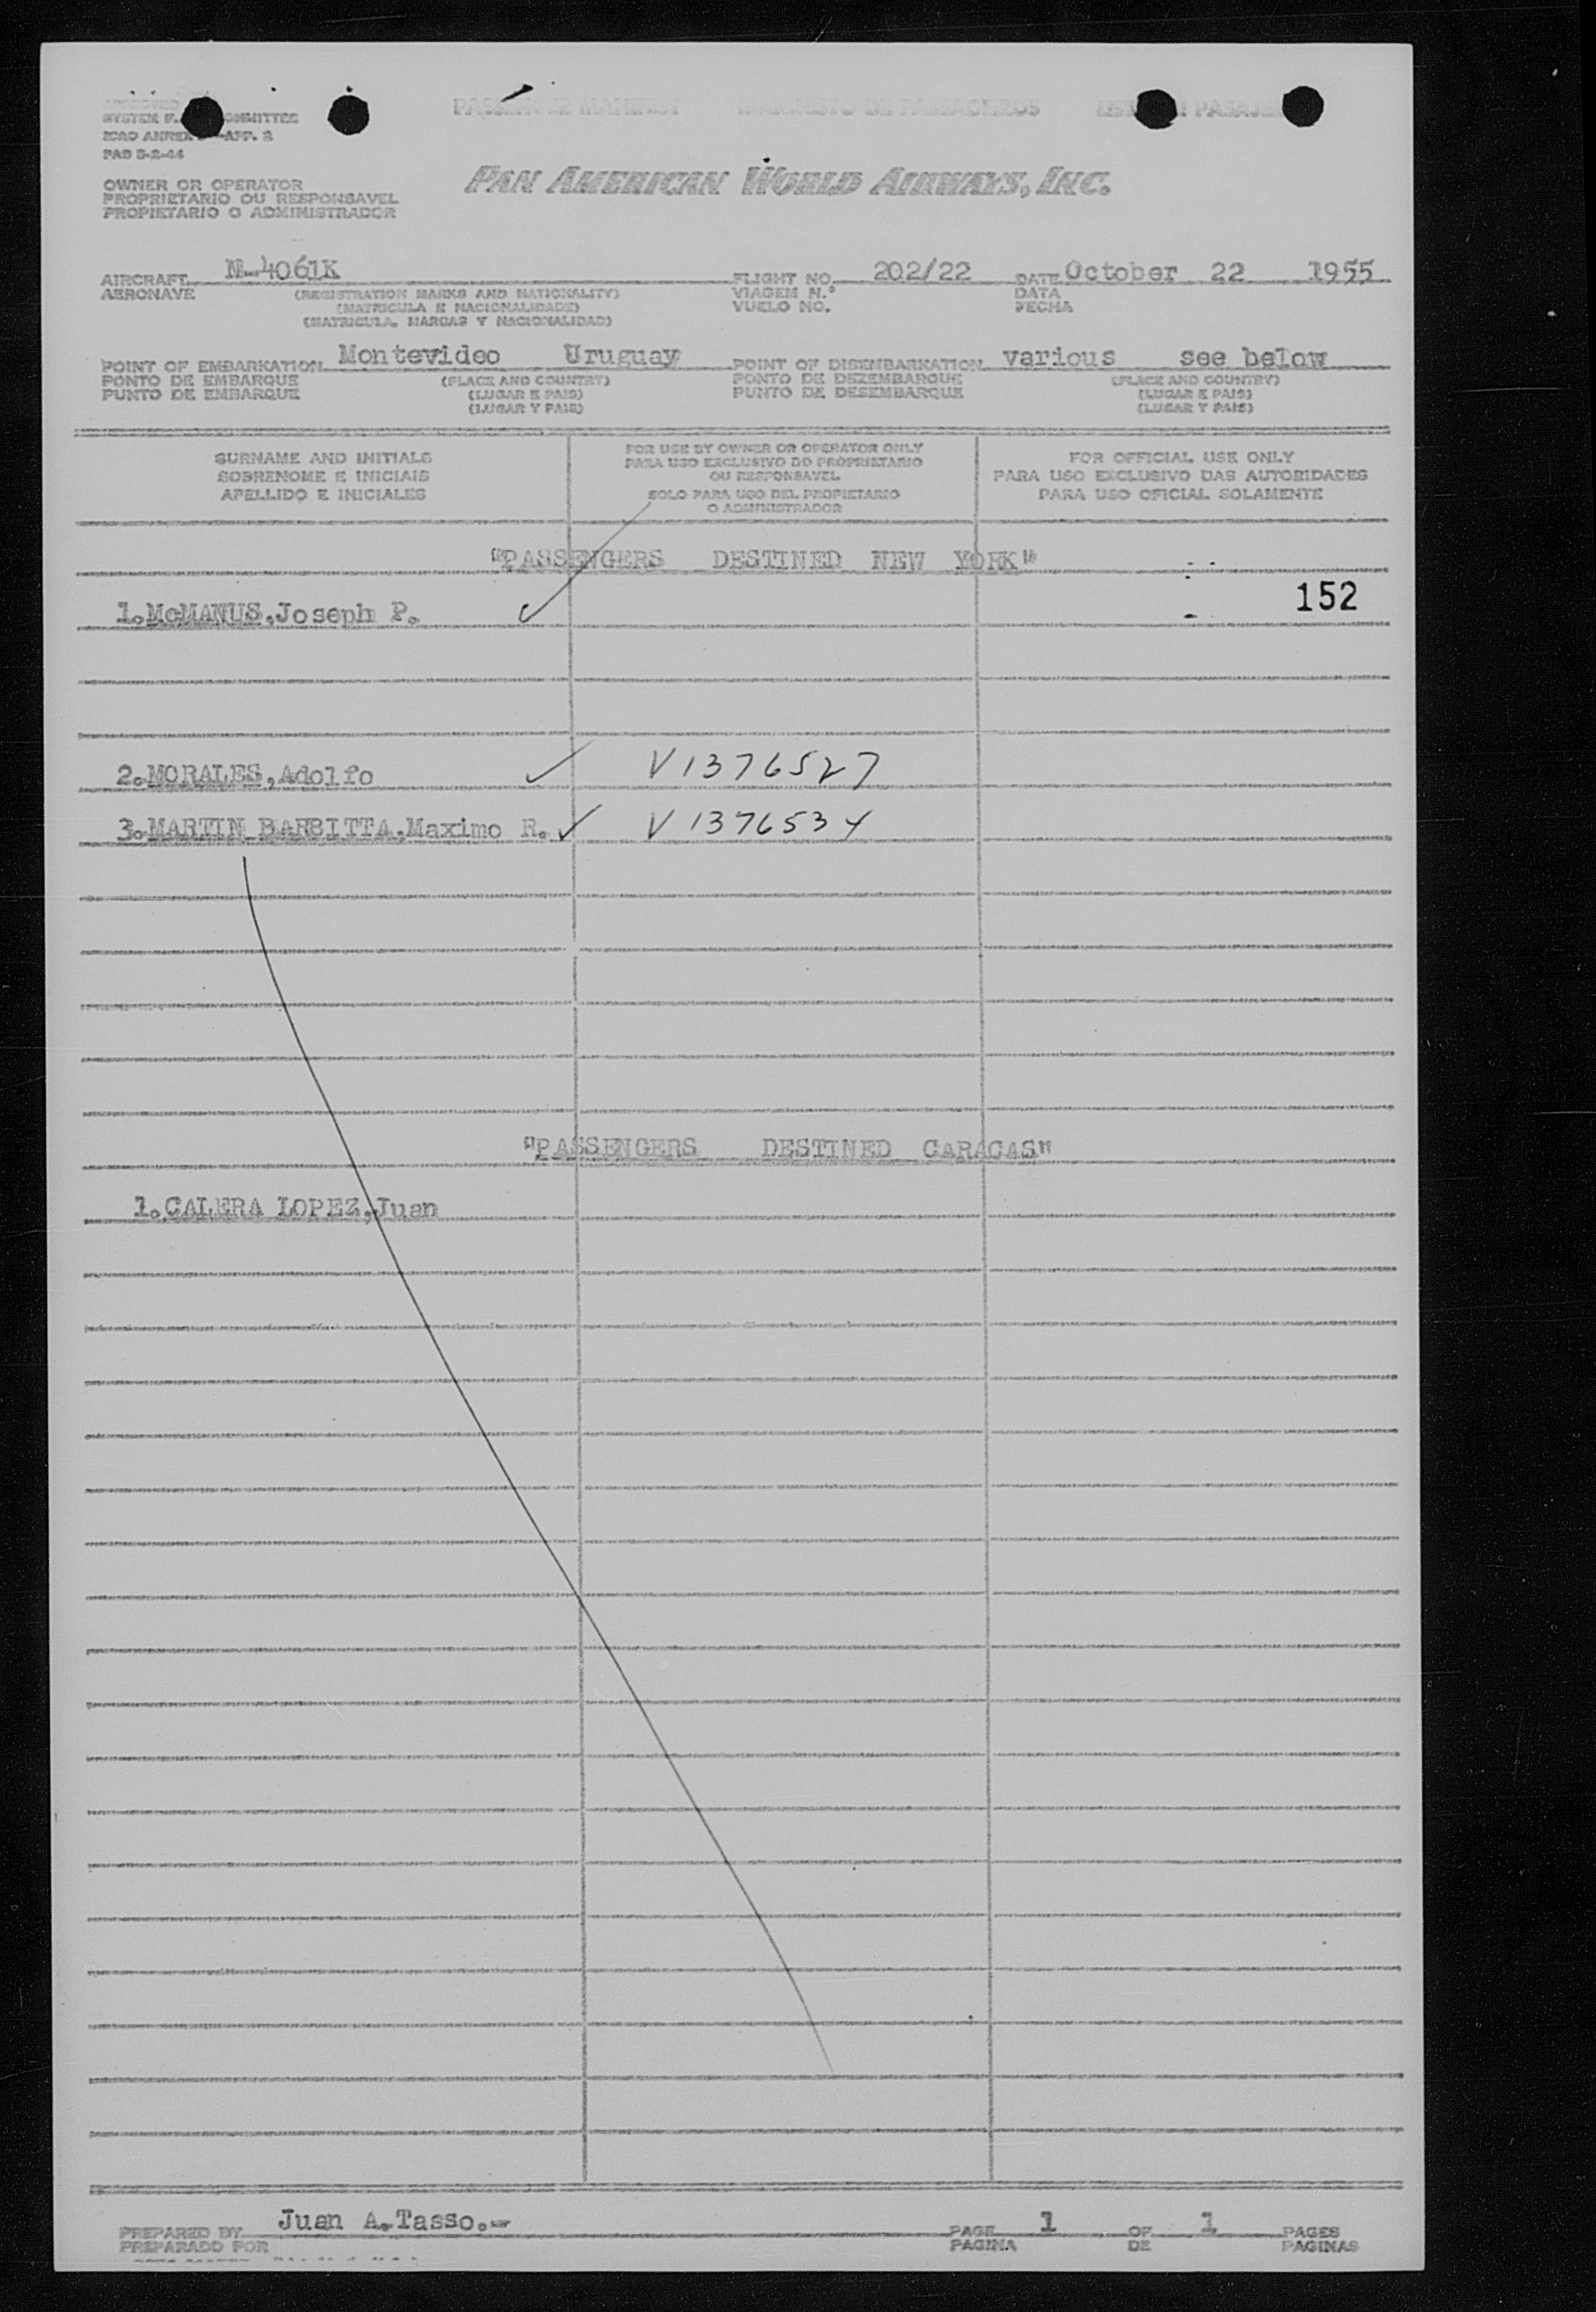 PASSENGER MANIFEST MANIFESTO DE PASSAGEIROS
SYSTEM
ICAO ANNEX APP. 2
PAD 5-2-44
OWNER OR OPERATOR
PROPRIETARIO OU RESPONSAVEL
PROPIETARIO O ADMINISTRADOR
PAN AMERICAN WORLD AIRWAYS, INC.
AIRCRAFT N-4061K FLIGHT NO. 202/22 DATE October 22 1955
AERONAVE (REGISTRATION MARKS AND NATIONALITY) VIAGEM N.º DATA
(MATRICULA E NACIONALIDADE) VUELO NO. FECHA
(MATRICULA, MARCAS Y NACIONALIDAD)
POINT OF EMBARKATION Montevideo Uruguay POINT OF DISEMBARKATION various see below
PONTO DE EMBARQUE (PLACE AND COUNTRY) PONTO DE DEZEMBARQUE (PLACE AND COUNTRY)
PUNTO DE EMBARQUE (LUGAR E PAIS) PUNTO DE DESEMBARQUE (LUGAR E PAIS)
(LUGAR Y PAIS) (LUGAR Y PAIS)
SURNAME AND INITIALS
SOBRENOME E INICIAIS
APELLIDO E INICIALES
FOR USE BY OWNER OR OPERATOR ONLY
PARA USO EXCLUSIVO DO PROPRIETARIO
OU RESPONSAVEL
SOLO PARA USO DEL PROPIETARIO
O ADMINISTRADOR
FOR OFFICIAL USE ONLY
PARA USO EXCLUSIVO DAS AUTORIDADES
PARA USO OFICIAL SOLAMENTE
"PASSENGERS DESTINED NEW YORK"
152
1.McMANUS,Joseph P.
2.MORALES,Adolfo V1376527
3.MARTIN BARBITTA,Maximo R. V1376534
"PASSENGERS DESTINED CARACAS"
1.CALERA LOPEZ,Juan
PREPARED BY Juan A.Tasso.- PAGE 1 OF 1 PAGES
PREPARADO POR PAGINA DE PAGINAS